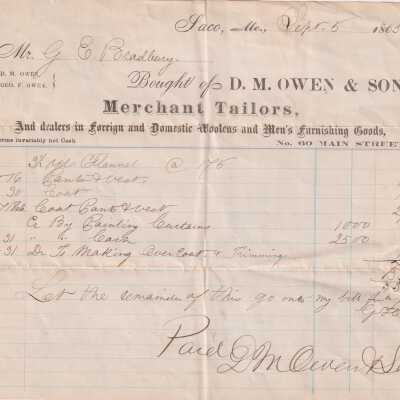 Saco, Me., Sept. 5 186
Mr. G E Bradbury,
D. M. OWEN,
GEO. F. OWEN.
Bought of D. M. OWEN & SON
Merchant Tailors,
And dealers in Foreign and Domestic Woolens and Men's Furnishing Goods,
Terms invariably net Cash
No. 60 MAIN STREET
yds Flannel @ 175
16 Pants & Vest
30 Coat
Coat Pant & Vest
Cr By Painting Curtains 1000
31 " " Cash 2500
31 Dr To Making Over Coat & Trimming
Let the remainder of this go on my bill
Paid D M Owen & S